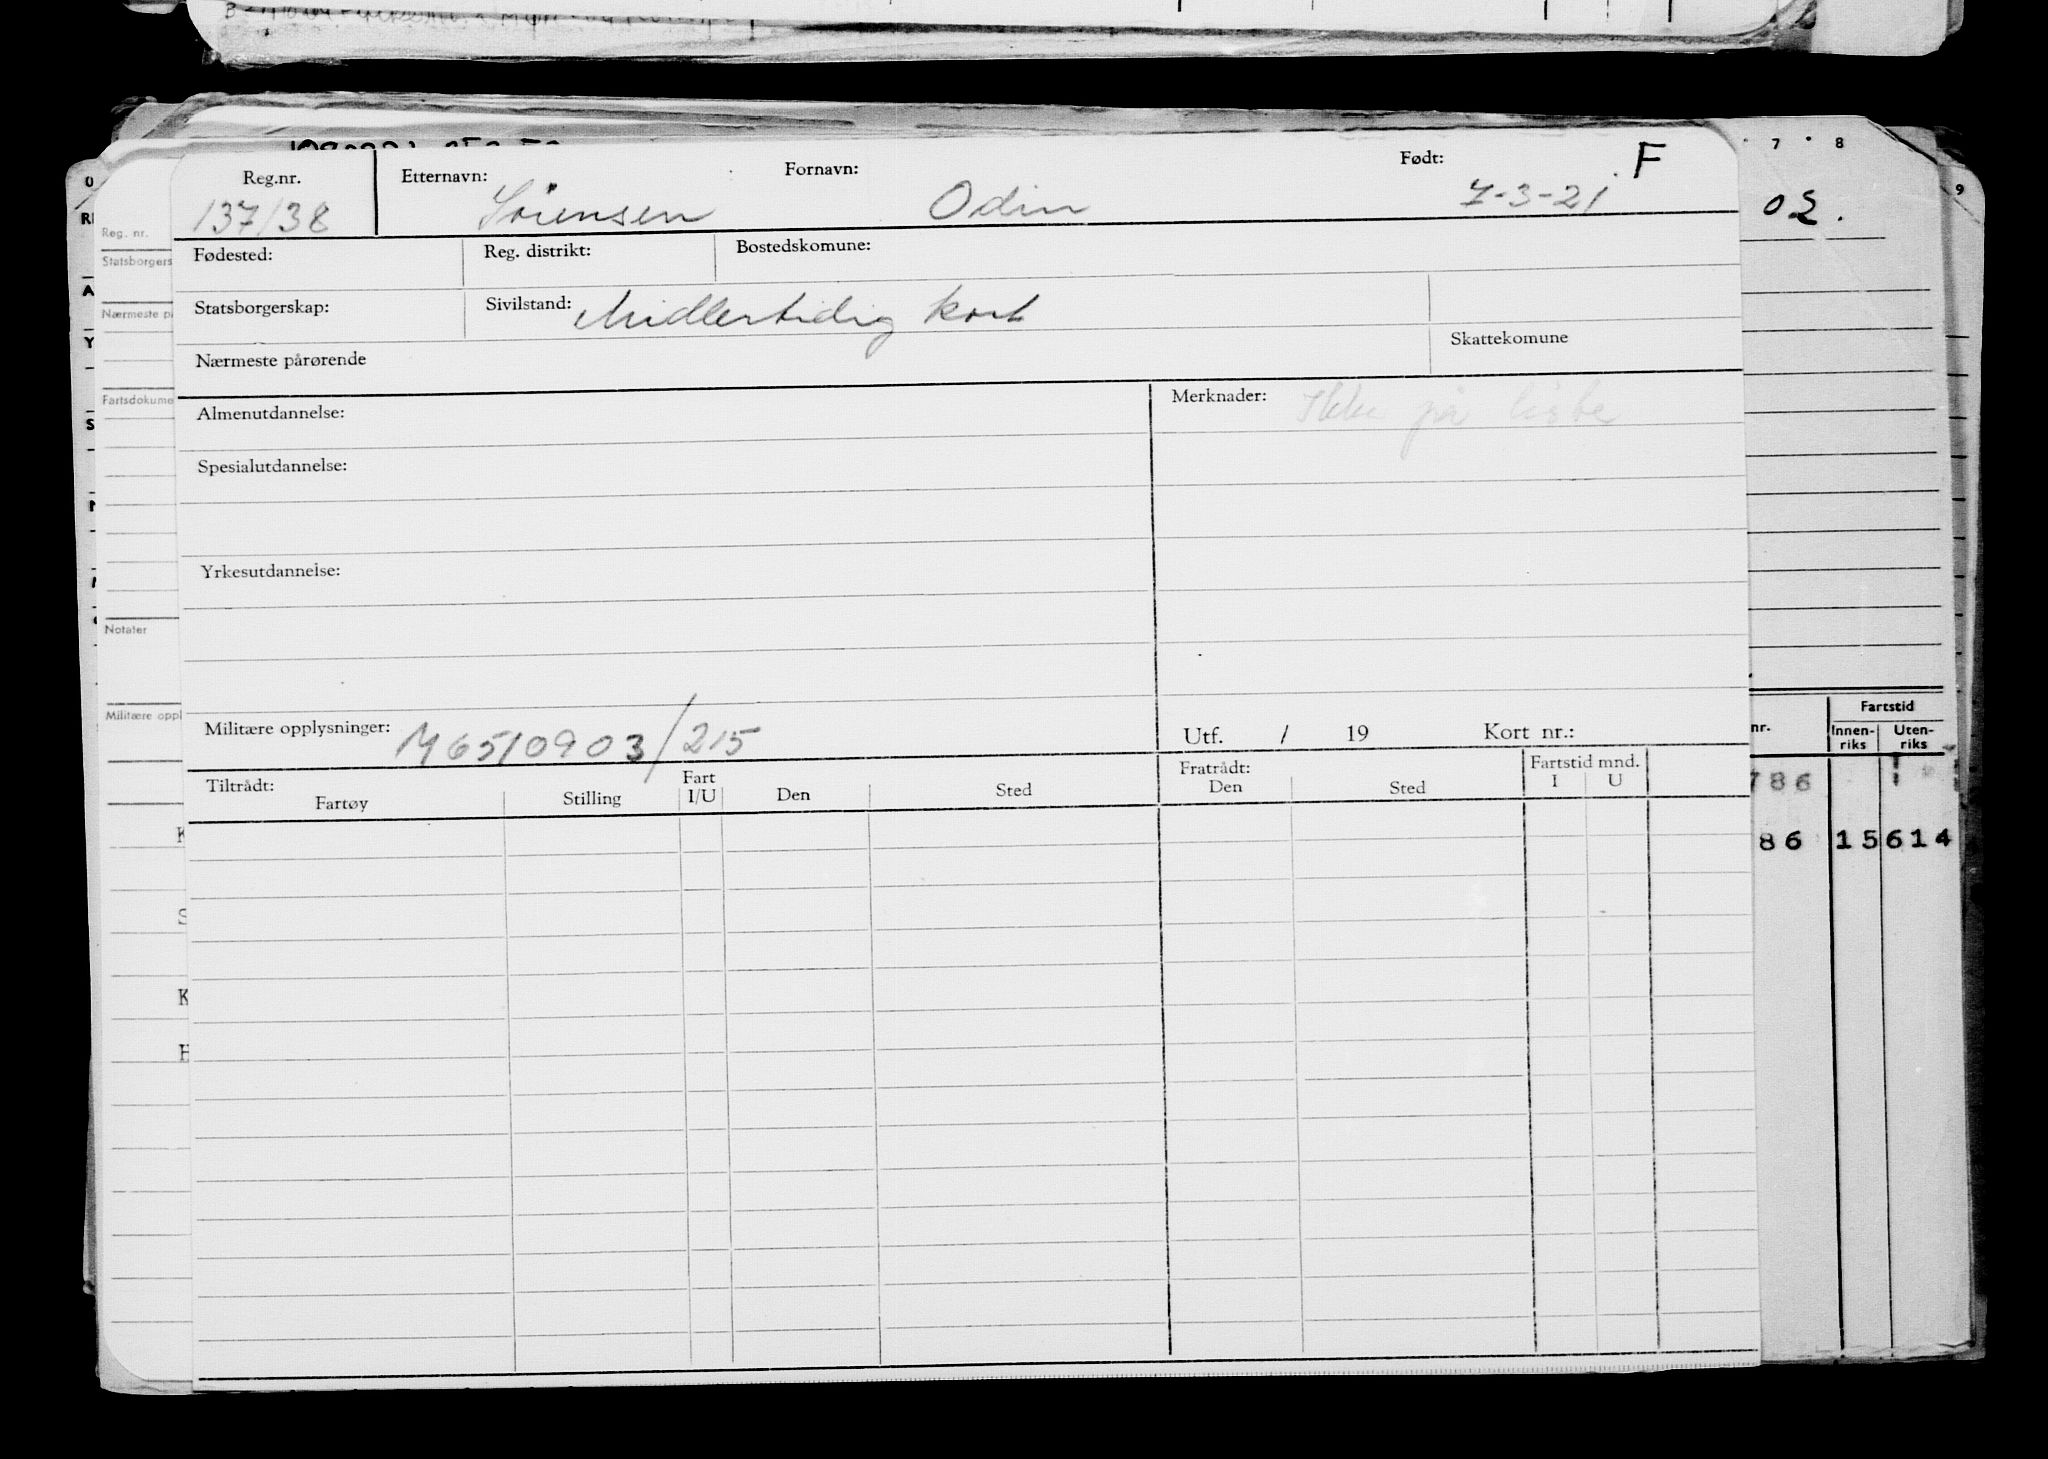 7 8
9
0
02.
Reg.nr. Etternavn: Fornavn: Født: F
137/38 Sörensen Odin 7-3-21
Reg. nr.
Fødested: Reg. distrikt: Bostedskomune:
Statsborgers
Statsborgerskap: Sivilstand: Midlertidig kort
Nærmeste p
Nærmeste pårørende Skattekomune
Fartsdokume
Almenutdannelse: Merknader: Ikke på liste
Spesialutdannelse:
Yrkesutdannelse:
Notater
Militære oppl
Militære opplysninger: M6510903/215 Utf. / 19 Kort nr.:
nr. Fartstid
Innen-riks Uten-riks
Tiltrådt: Fart Fratrådt: Fartstid mnd.
Fartøy Stilling I/U Den Sted Den Sted I U
786
86 15 614
K
S
K
H